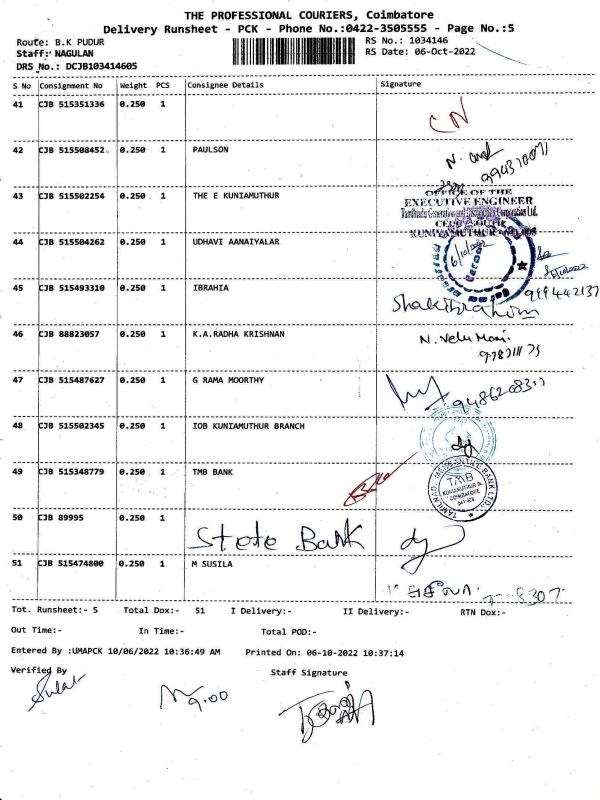 THE PROFESSIONAL COURIERS, Coimbatore
Delivery Runsheet - PCK - Phone No.:0422-3505555 - Page No.:5
Route: B.K PUDUR RS No.: 1034146
Staff: NAGULAN RS Date: 06-Oct-2022
DRS No.: DCJB103414605
S No Consignment No Weight PCS Consignee Details Signature
41 CJB 515351336 0.250 1 CN
42 CJB 515508452 0.250 1 PAULSON
43 CJB 515502254 0.250 1 THE E KUNIAMUTHUR
OFFICE OF THE
EXECUTIVE ENGINEER
44 CJB 515504262 0.250 1 UDHAVI AANAIYALAR
6/10/2022
45 CJB 515493310 0.250 1 IBRAHIA
46 CJB 88823057 0.250 1 K.A.RADHA KRISHNAN N. Velu Mani
47 CJB 515487627 0.250 1 G RAMA MOORTHY
48 CJB 515502345 0.250 1 IOB KUNIAMUTHUR BRANCH
49 CJB 515348779 0.250 1 TMB BANK
TAMILNAD MERCANTILE BANK LTD.
TMB
COIMBATORE
50 CJB 89995 0.250 1
State Bank
51 CJB 515474800 0.250 1 M SUSILA
Tot. Runsheet:- 5 Total Dox:- 51 I Delivery:- II Delivery:- RTN Dox:-
Out Time:- In Time:- Total POD:-
Entered By :UMAPCK 10/06/2022 10:36:49 AM Printed On: 06-10-2022 10:37:14
Verified By Staff Signature
9.00